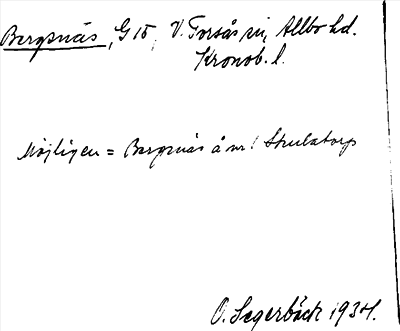 Bergsnäs, G 15, V. Torsås sn, Allbo hd.
Kronob. l.
Möjligen = Bergsnäs å nr! Skulatorp
O. Segerbäck 1934.